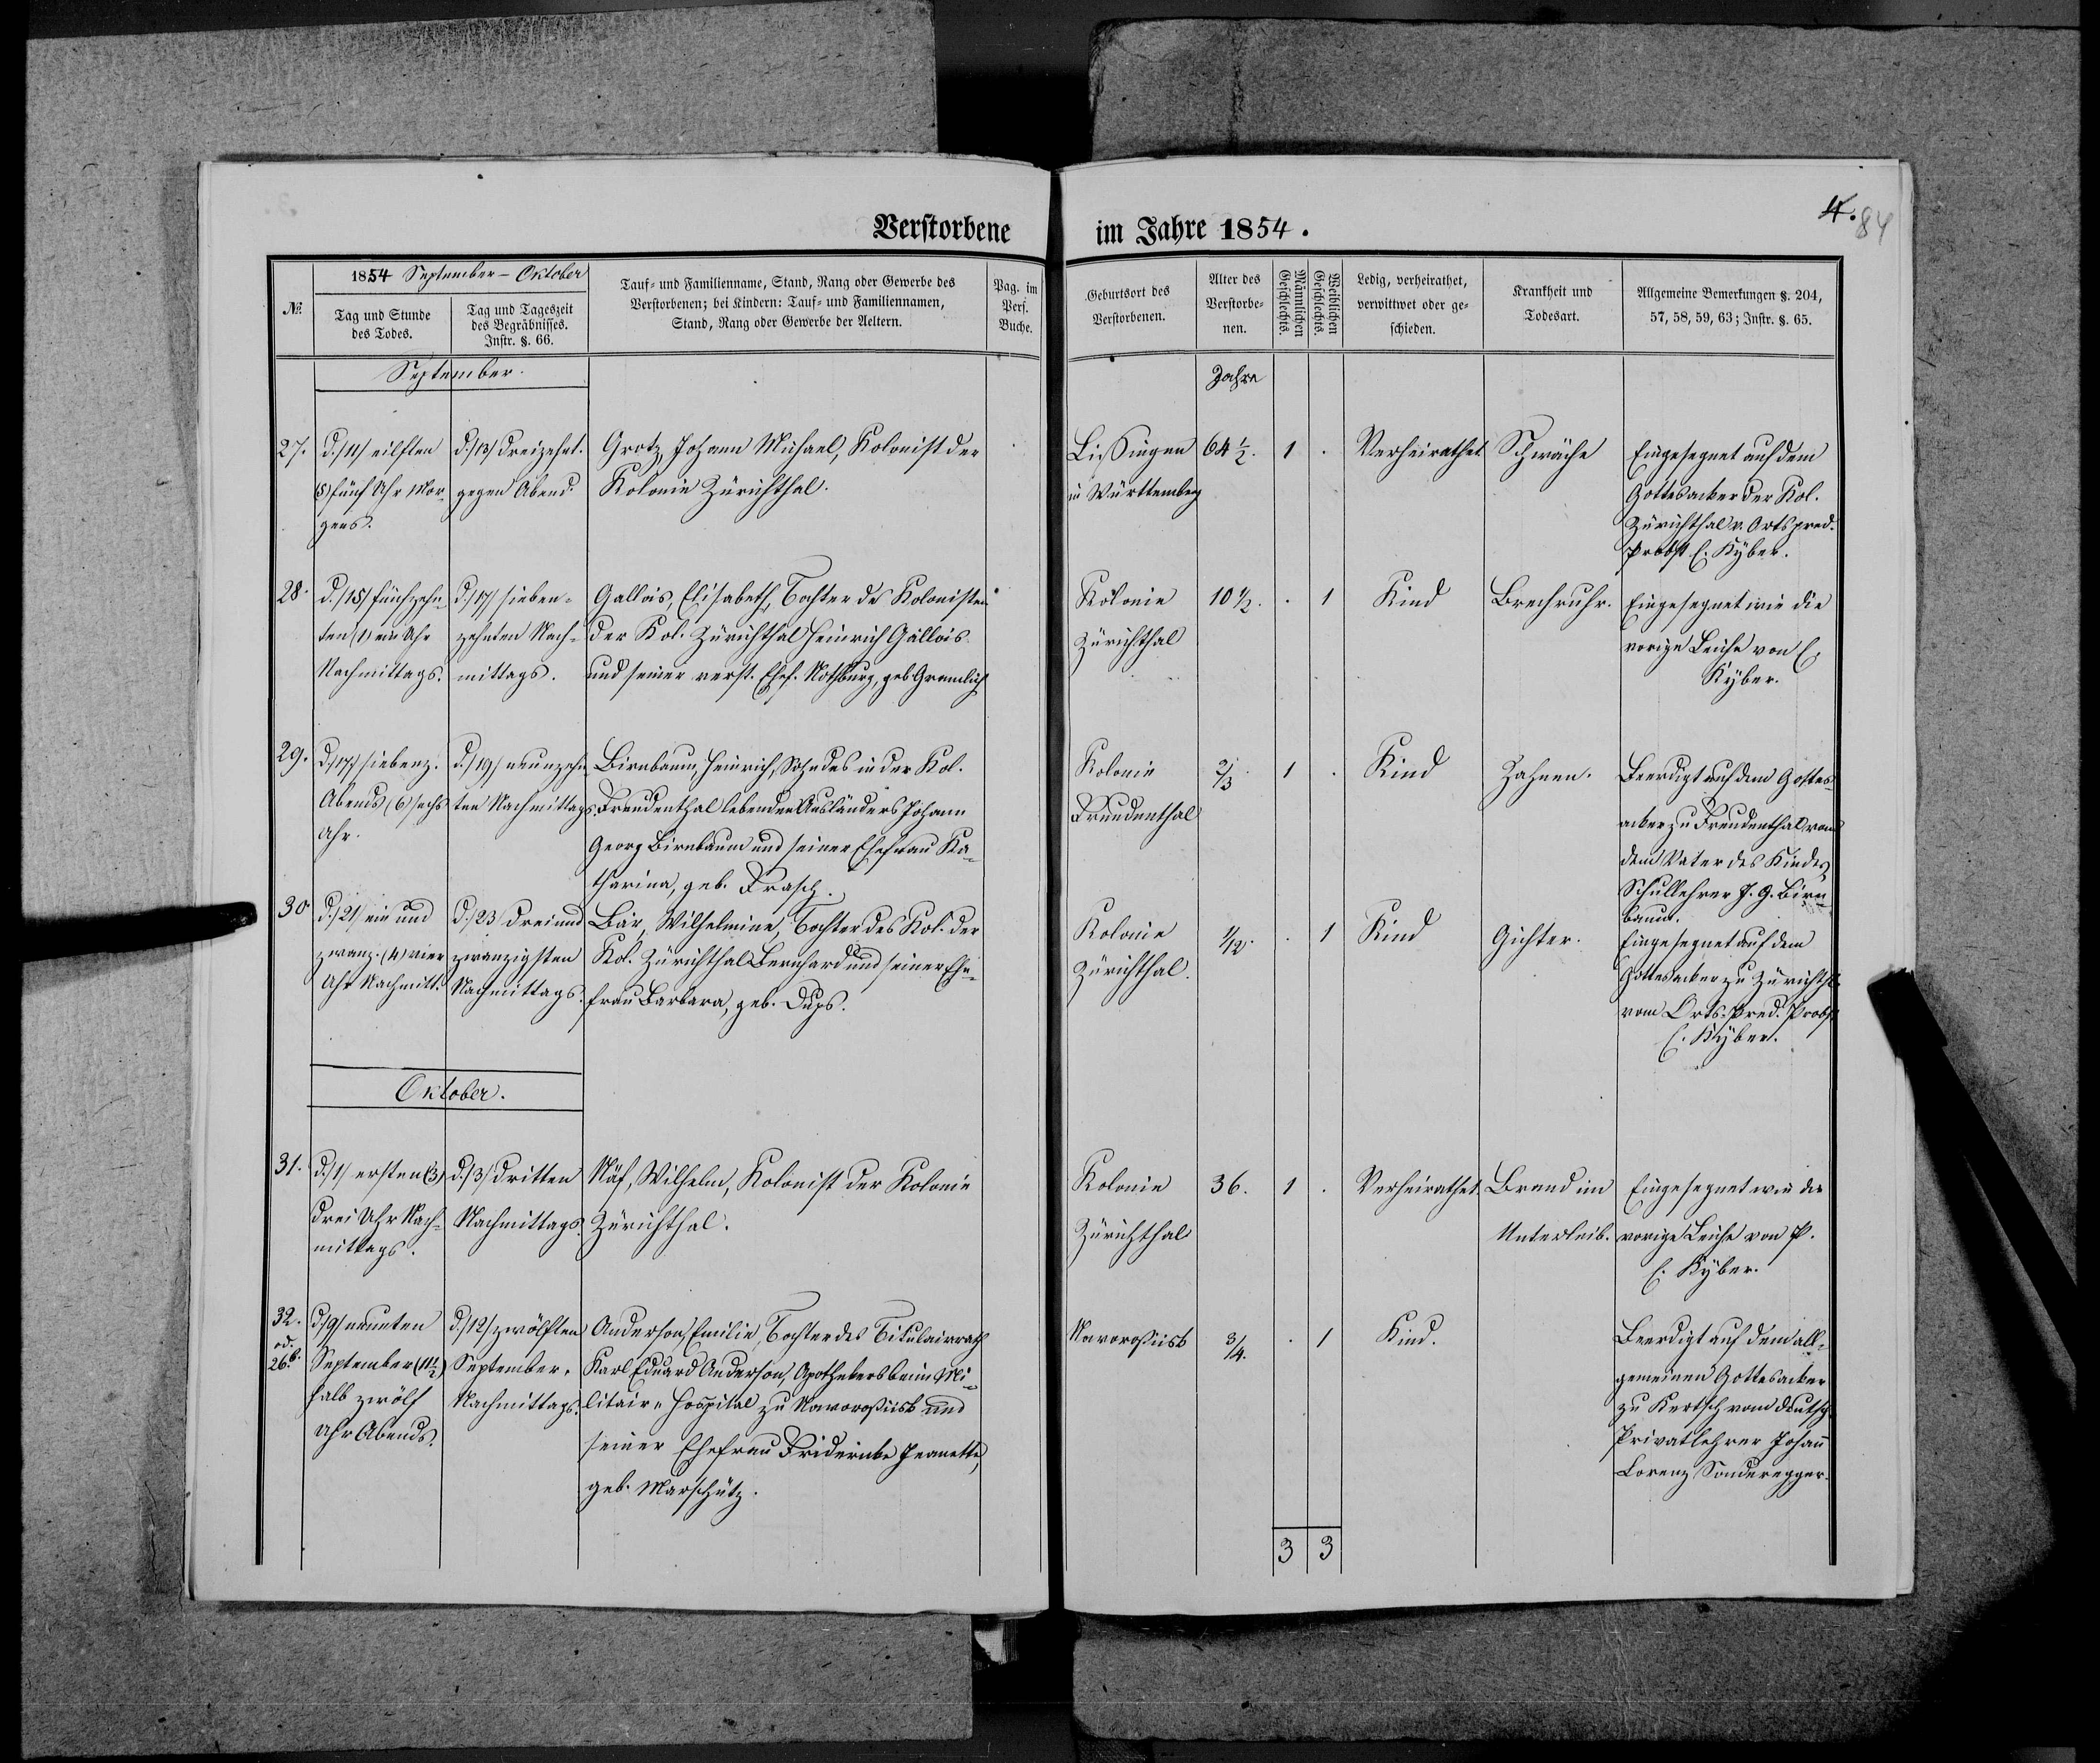 Verstorbene im Jahre 1854.
4. 84
№
1854 September – Oktober
Tag und Stunde
des Todes.
Tag und Tageszeit
des Begräbnisses.
Instr. §. 66.
Tauf- und Familienname, Stand, Rang oder Gewerbe des
Verstorbenen; bei Kindern: Tauf- und Familiennamen,
Stand, Rang oder Gewerbe der Aeltern.
Pag. im
Pers.
Buche.
Geburtsort des
Verstorbenen.
Alter des
Verstorbe-
nen.
Männlichen
Geschlechts.
Weiblichen
Geschlechts.
Ledig, verheirathet,
verwittwet oder ge-
schieden.
Krankheit und
Todesart.
Allgemeine Bemerkungen §. 204,
57, 58, 59, 63; Instr. §. 65.
September.
Jahre
27.
d./11/ eilften
(5) fünf Uhr Mor-
gens.
d./13/ dreizehnt.
gegen Abend.
Grotz, Johann Michael, Kolonist der
Kolonie Zürichthal.
Lißingen
in Württemberg
64 1/2.
1
.
Verheirathet
Schwäche
Eingesegnet auf dem
Gottesacker der Kol.
Zürichthal v. Ortspred.
Probst C. Kyber.
28.
d./15/ fünfzehn-
ten (1) ein Uhr
Nachmittags.
d./17/ sieben-
zehnten Nach-
mittags.
Gallois, Elisabeth, Tochter des Kolonisten
der Kol. Zürichthal Heinrich Gallois
und seiner verst. Ehef. Nothburg, geb. Gramlich
Kolonie
Zürichthal
10 1/2.
.
1
Kind
Brechruhr.
Eingesegnet wie die
vorige Leiche von C.
Kyber.
29.
d./17/ siebenz.
Abends (6) sechs
Uhr.
d./19/ neunzehn-
ten Nachmittags.
Birnbaum, Heinrich, Sohn des in der Kol.
Freudenthal lebenden Ausländers Johann
Georg Birnbaum und seiner Ehefrau Ka-
tharina, geb. Frasch.
Kolonie
Freudenthal
2/3.
1
.
Kind
Zahnen.
Beerdigt auf dem Gottes-
acker zu Freudenthal von
dem Vater des Kindes
Schullehrer J. G. Birn-
baum.
30
d./21/ ein und
zwanz. (4) vier
Uhr Nachmitt.
d./23 drei und
zwanzigsten
Nachmittags.
Bär, Wilhelmine, Tochter des Kol. der
Kol. Zürichthal Bernhard und seiner Ehe-
frau Barbara, geb. Dups.
Kolonie
Zürichthal.
1/12.
.
1
Kind
Gichter.
Eingesegnet auf dem
Gottesacker zu Zürichth.
vom Orts-Pred. Probst
C. Kyber.
Oktober.
31.
d./1/ ersten (3)
drei Uhr Nach-
mittags.
d./3/ dritten
Nachmittags.
Näf, Wilhelm, Kolonist der Kolonie
Zürichthal.
Kolonie
Zürichthal
36.
1
.
Verheirathet.
Brand im
Unterleib.
Eingesegnet wie die
vorige Leiche von P.
C. Kyber.
32.
od.
26.b.
d./9/ neunten
September (11 1/2)
halb zwölf
Uhr Abends.
d./12/ zwölften
September.
Nachmittags.
Anderson, Emilie, Tochter des Titulairrath
Karl Eduard Anderson, Apothekers beim Mi-
litair-Hospital zu Noworoßiisk und
seiner Ehefrau Friderike Jeanette,
geb. Marschütz.
Noworoßiisk
3/4.
.
1
Kind.
Beerdigt auf dem all-
gemeinen Gottesacker
zu Kertsch vom deutsch.
Privatlehrer Johann
Lorenz Sonderegger.
3 3